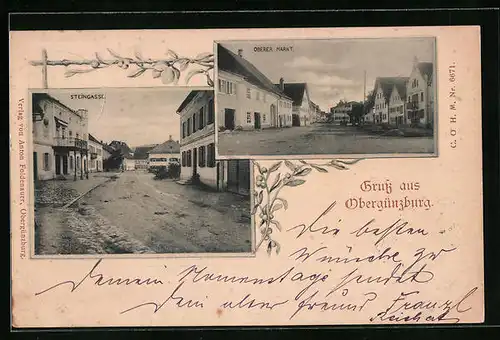 OBERER MARKT.
STERNGASSE.
Verlag von Anton Foldenauer, Obergünzburg.
C. O. H. W. Nr. 6671.
Gruß aus
Obergünzburg.
Die besten
Wünsche zu
Deinem Namenstage sendet
Dein alter Freund Franzl